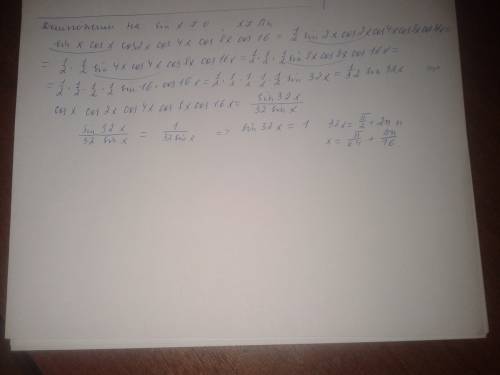 домножим на sin x ≠ 0, x ≠ Πn
sin x cos x cos2x cos 4x cos 8x cos 16 = 1/2 sin 2x cos 2x cos4x cos8x cos 16x =
= 1/2 · 1/2 sin 4x cos 4x cos 8x cos 16x = 1/2 · 1/2 · 1/2 sin 8x cos 8x cos 16x =
= 1/2 · 1/2 · 1/2 · 1/2 sin 16 · cos 16x = 1/2 · 1/2 · 1/2 · 1/2 · 1/2 sin 32x = 1/32 sin 32x
cos x cos 2x cos 4x cos 8x cos 16x = sin 32x / 32 sin x
sin 32x / 32 sin x = 1 / 32 sin x => sin 32x = 1 32x = π/2 + 2π n
x = π/64 + πn/16